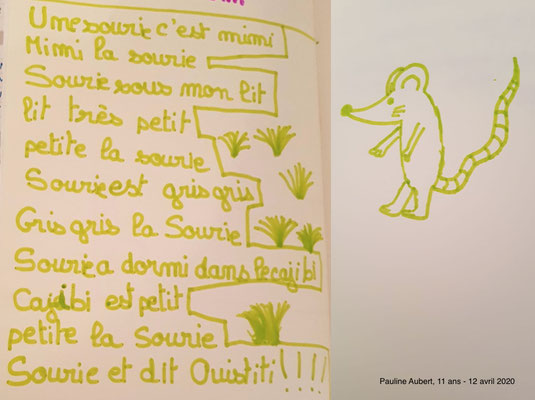 Une sourie c'est mimi
Mimi la sourie
Sourie sous mon lit
lit très petit
petite la sourie
Sourie est gris gris
Gris gris la Sourie
Sourie a dormi dans le cajibi
Cajibi est petit
petite la Sourie
Sourie et dit Ouistiti!!!!
Pauline Aubert, 11 ans - 12 avril 2020